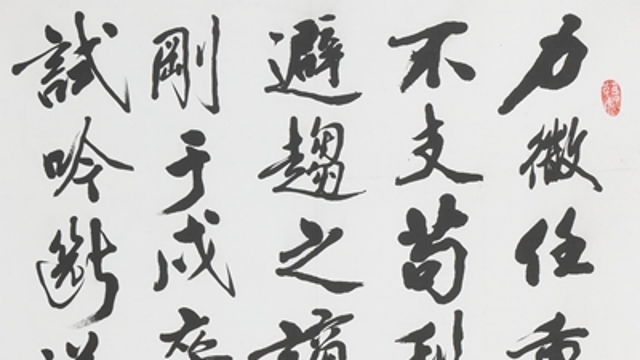 力微任重
不支苟利
避趨之謫
剛于戍卒
試吟斷